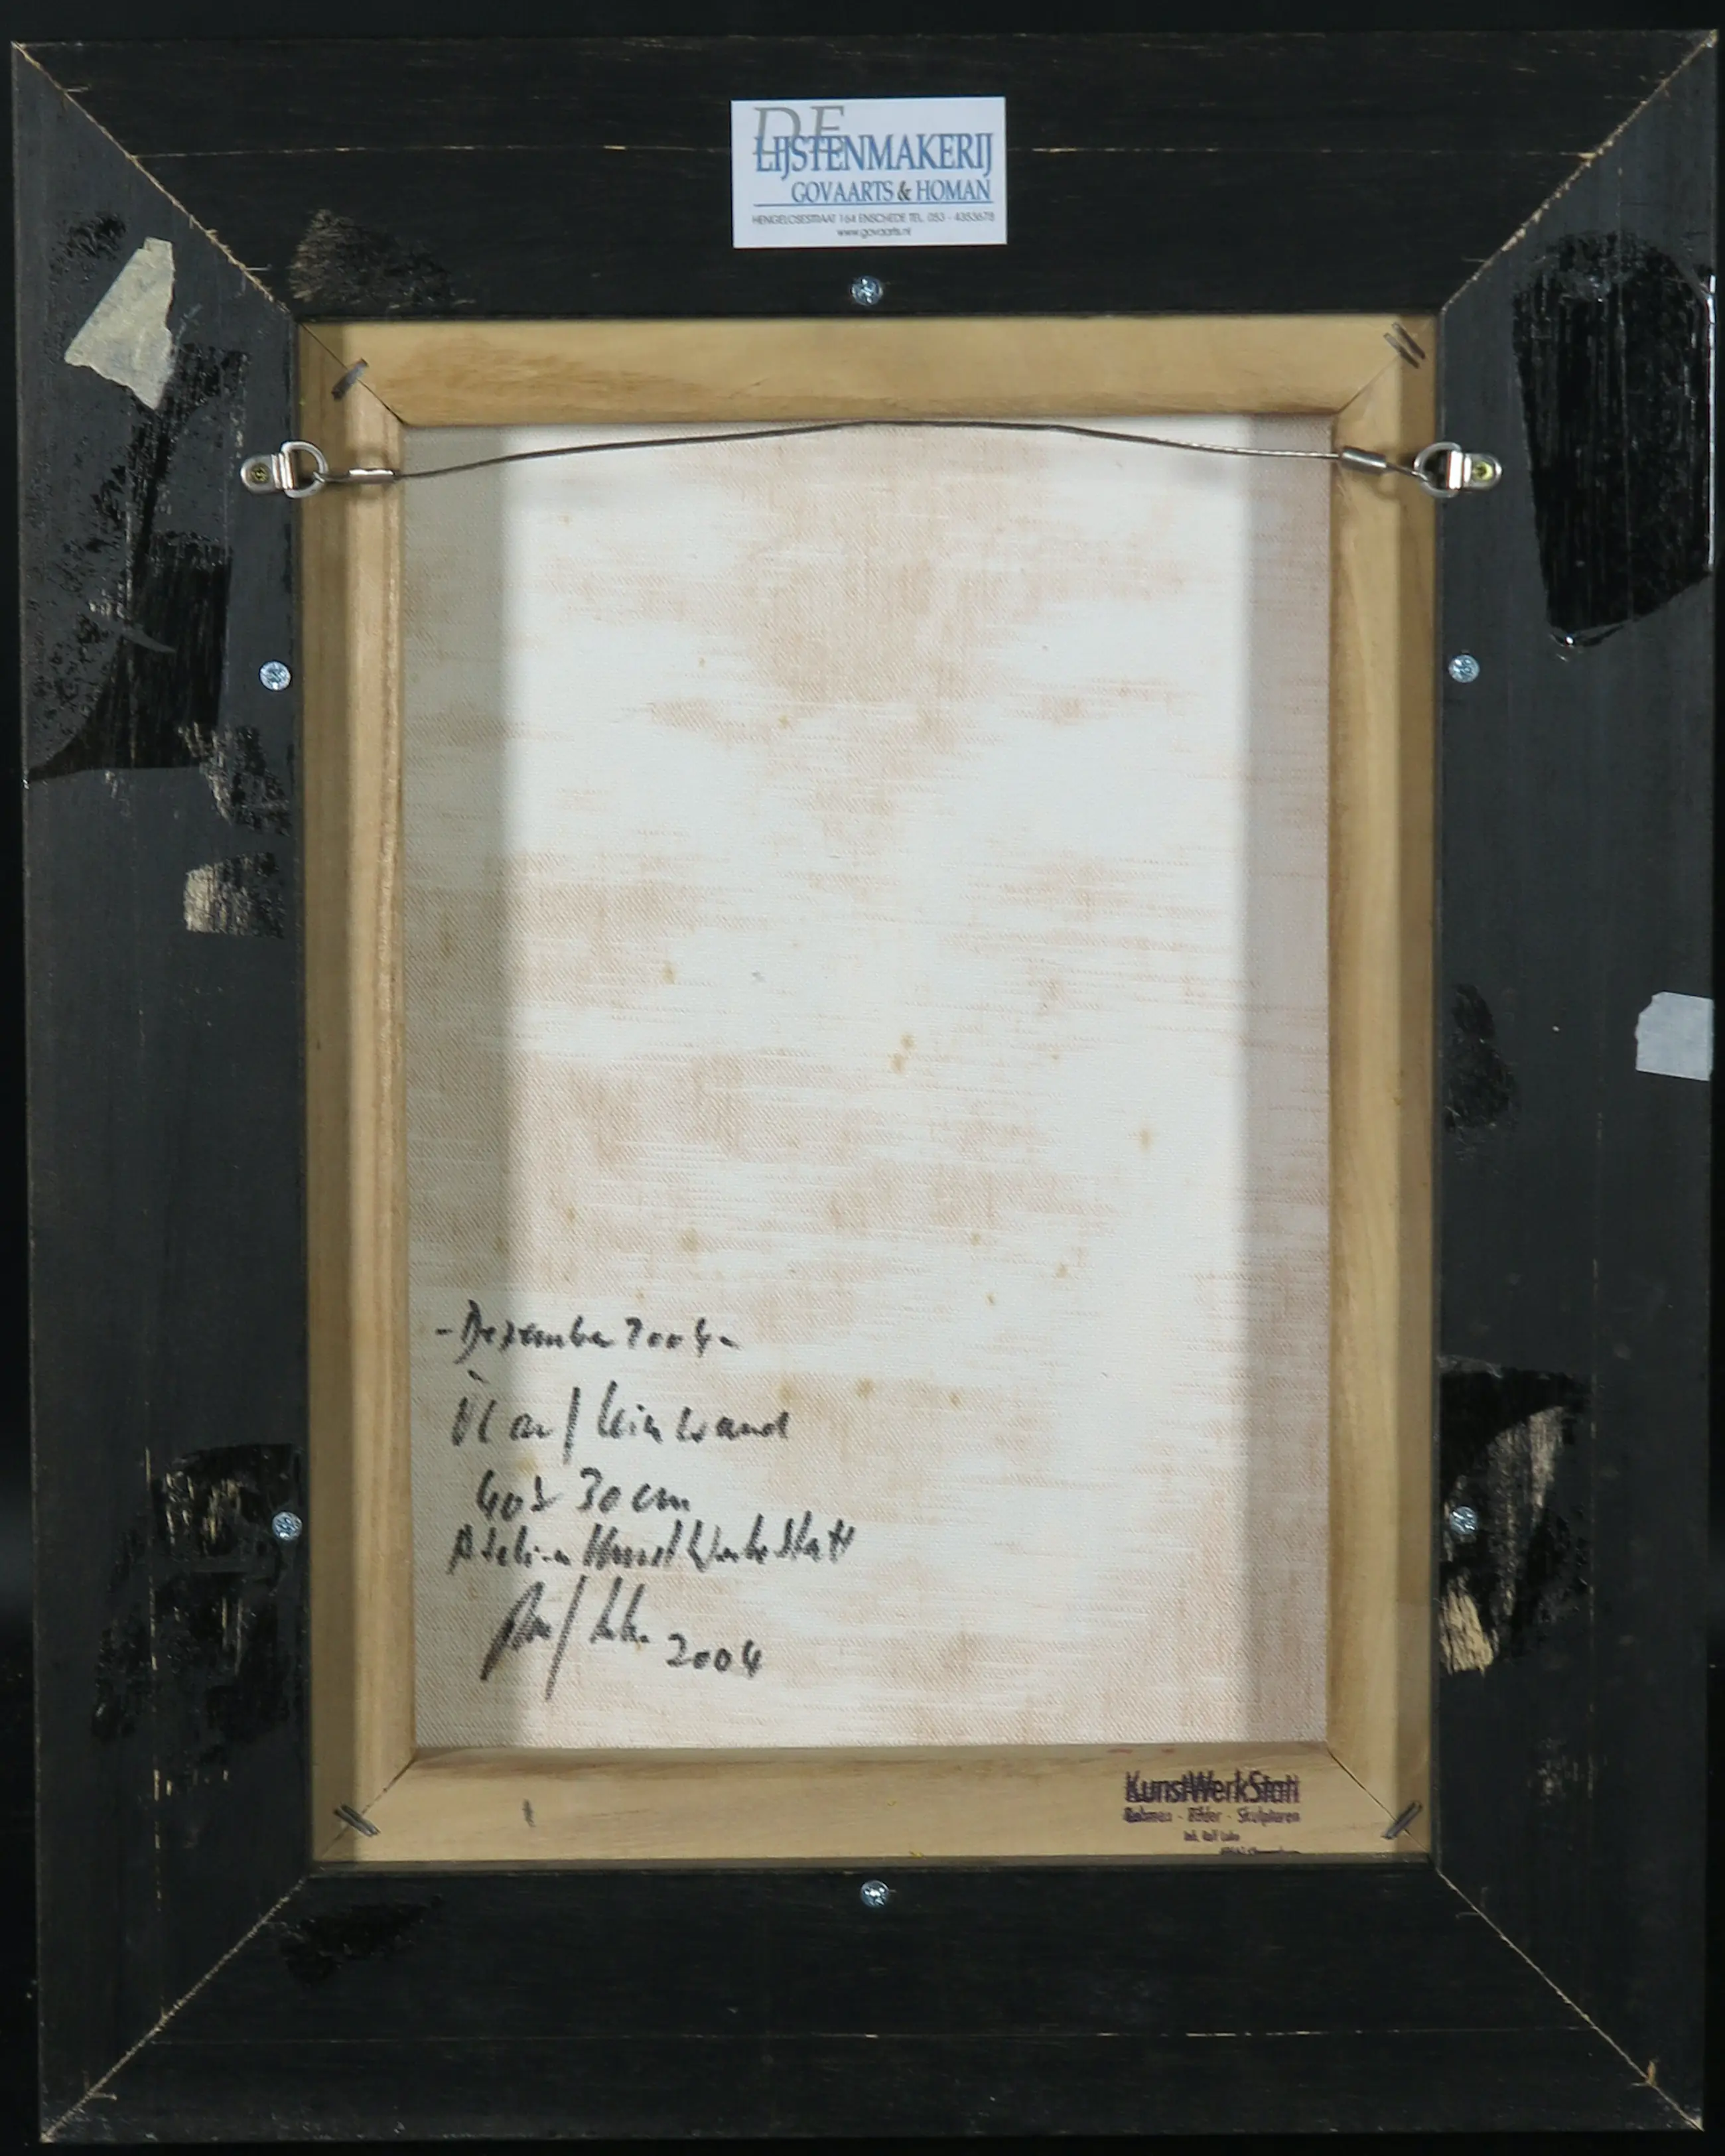 DE
LIJSTENMAKERIJ
GOVAARTS & HOMAN
HENGELOSESTRAAT 164 ENSCHEDE TEL. 053 - 4353678
www.govaarts.nl
- Dezember 2004 -
Öl auf Leinwand
40 x 30 cm
Atelier KunstWerkStatt
2004
KunstWerkStatt
Rahmen - Bilder - Skulpturen
Inh. Ralf